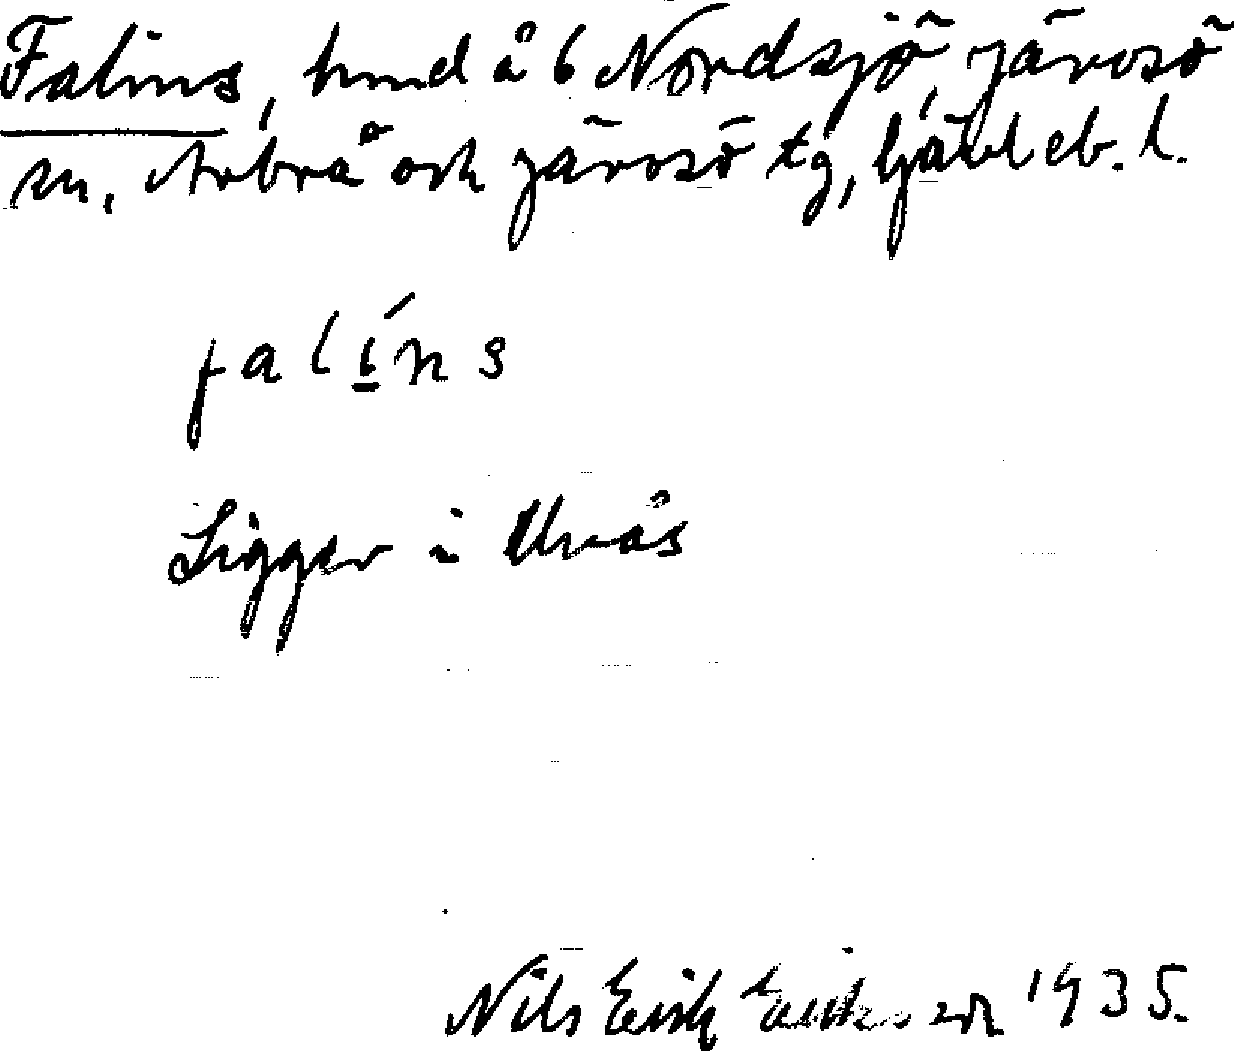 Falins, hmd å 6 Nordsjö, Järvsö
sn, Arbrå och Järvsö tg, Gävleb. l.
falíns
Ligger i Unås
Nils Erik Eriksson 1935.